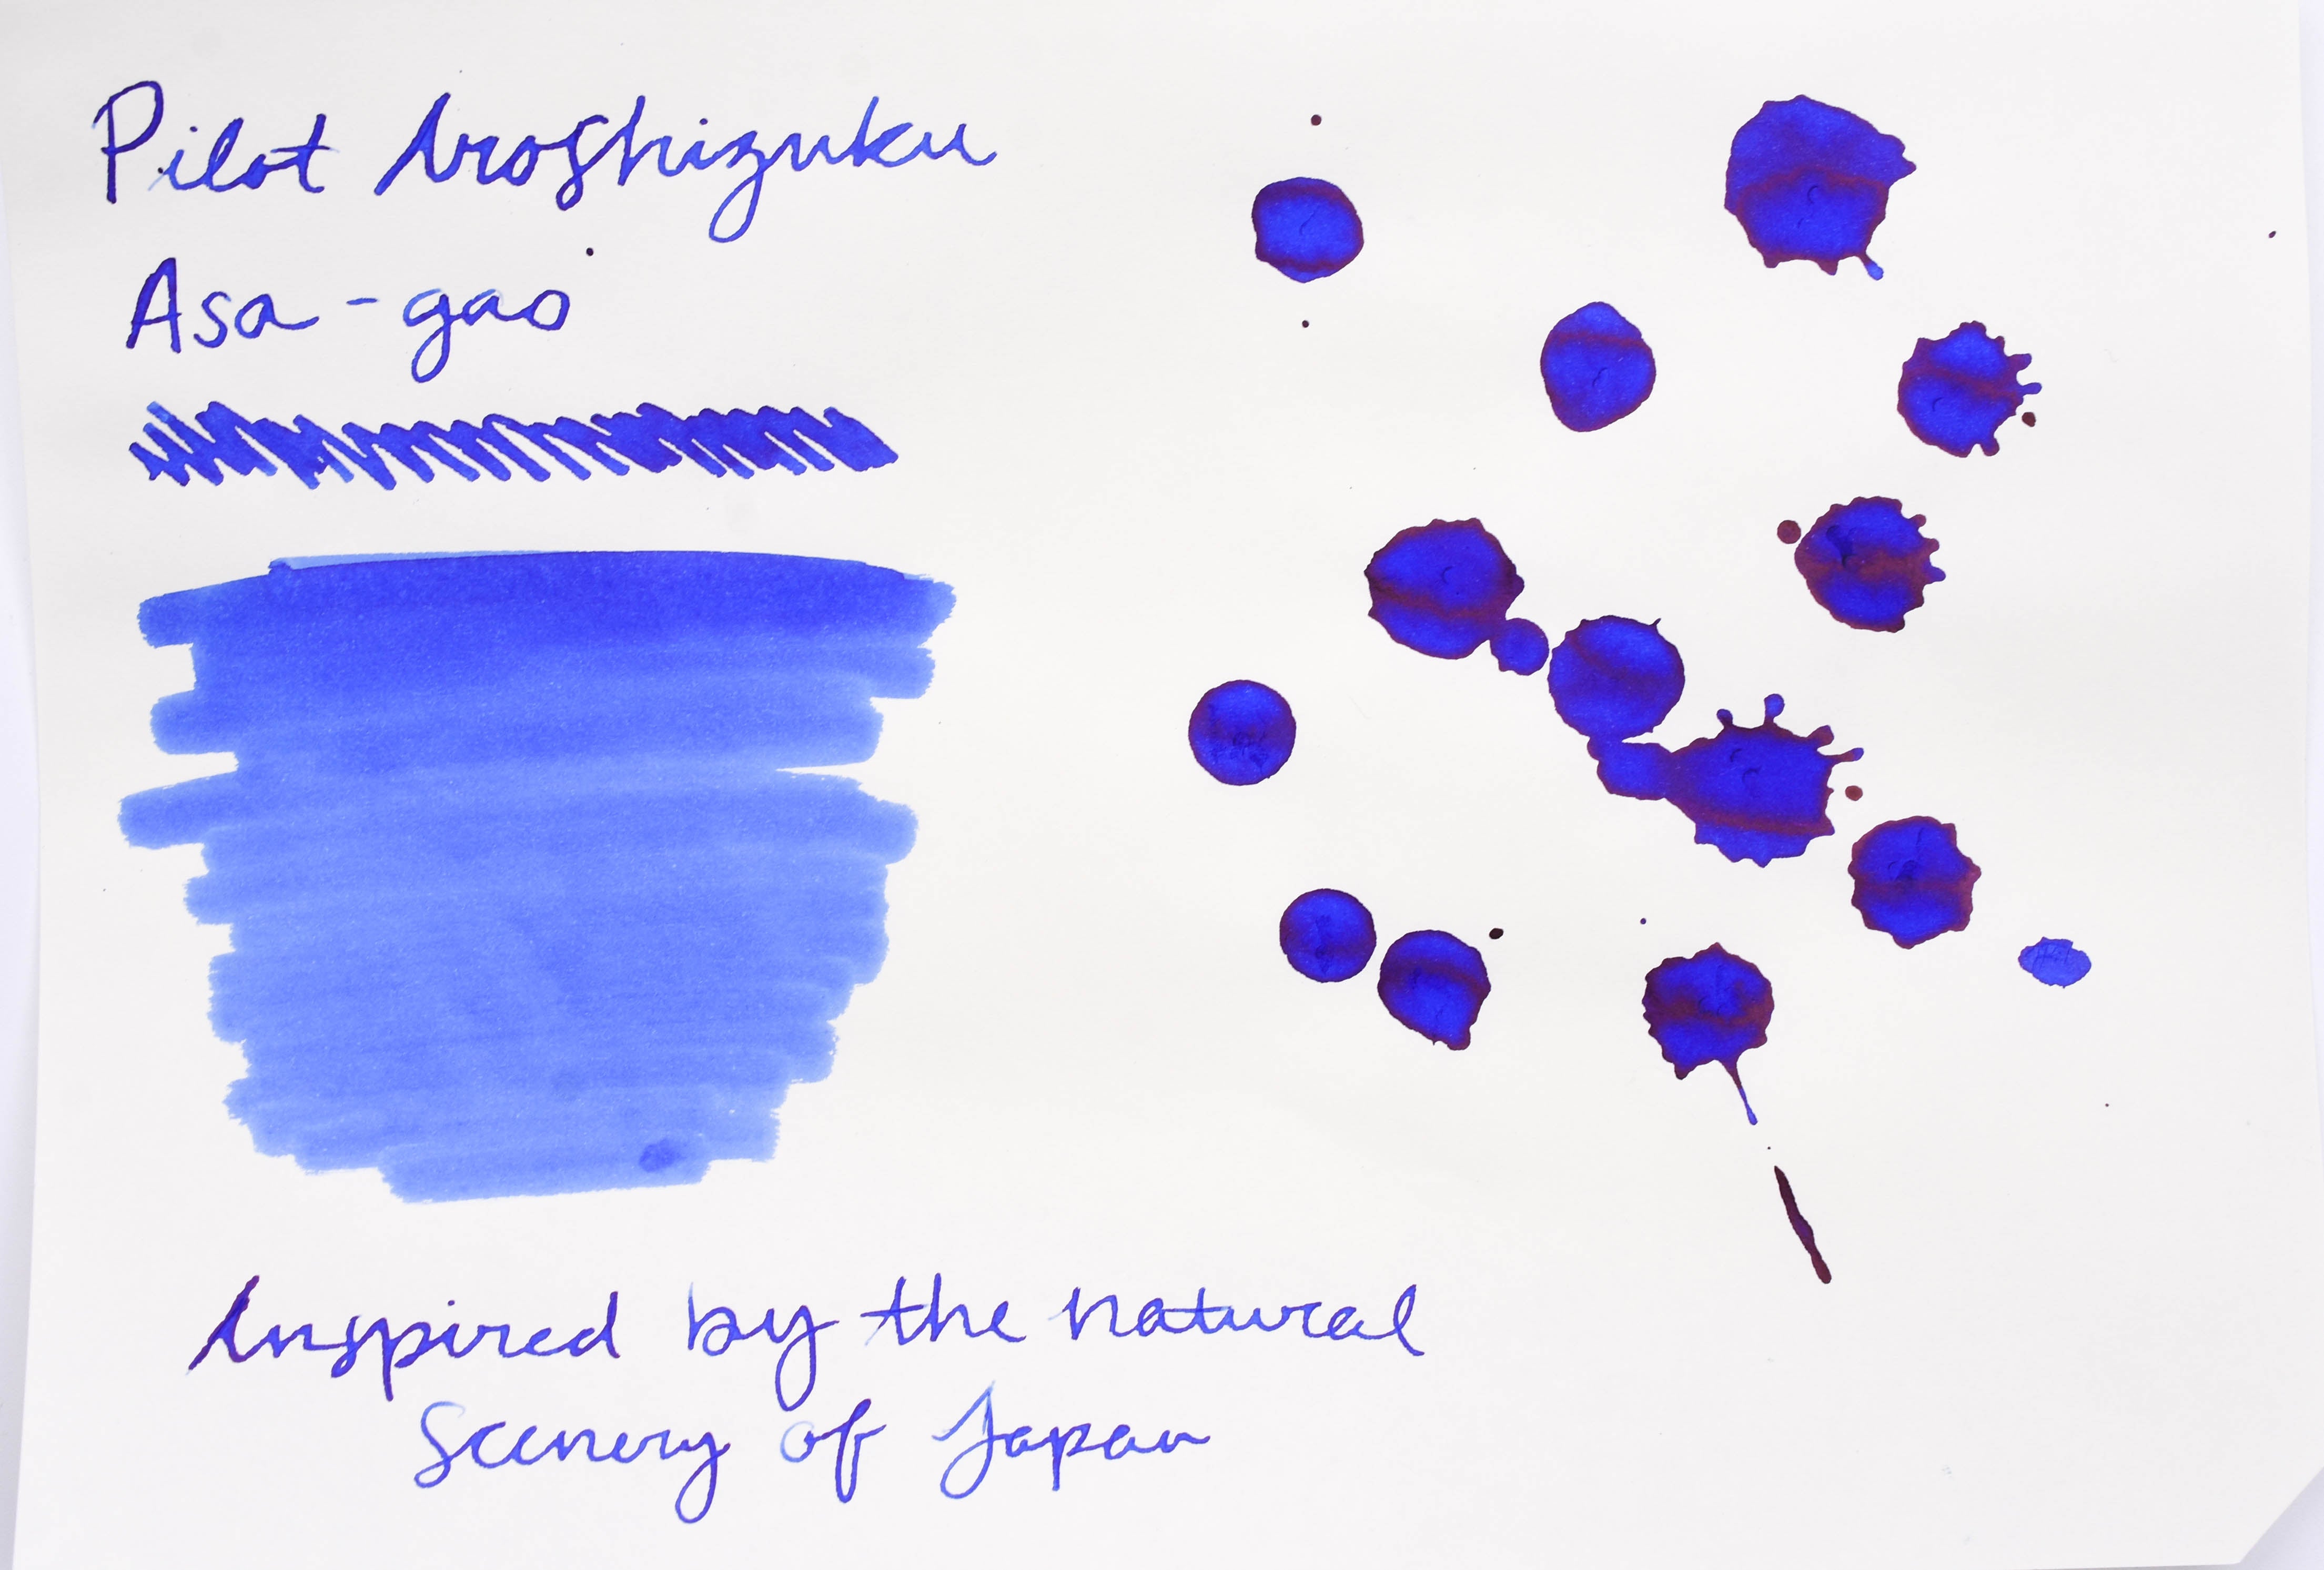 Pilot Iroshizuku
Asa-gao
Inspired by the natural
Scenery of Japan